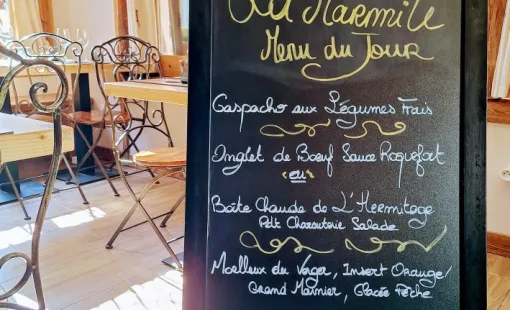 La Marmite
Menu du Jour
Gaspacho aux Légumes Frais
Onglet de Bœuf Sauce Roquefort
"ou"
Boîte Chaude de L'Hermitage
Petit Charcuterie Salade
Moelleux du Verger, Insert Orange/
Grand Marnier, Glacée Pêche